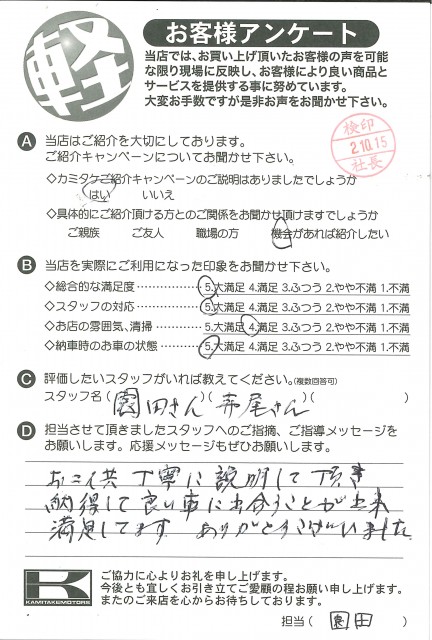 軽
お客様アンケート
当店では、お買い上げ頂いたお客様の声を可能
な限り現場に反映し、お客様により良い商品と
サービスを提供する事に努めています。
大変お手数ですが是非お声をお聞かせ下さい。
検印
2.10.15
社長
A 当店はご紹介を大切にしております。
ご紹介キャンペーンについてお聞かせ下さい。
◇カミタケご紹介キャンペーンのご説明はありましたでしょうか
はい いいえ
◇具体的にご紹介頂ける方とのご関係をお聞かせ頂けますでしょうか
ご親族 ご友人 職場の方 機会があれば紹介したい
B 当店を実際にご利用になった印象をお聞かせ下さい。
◇総合的な満足度……………5.大満足 4.満足 3.ふつう 2.やや不満 1.不満
◇スタッフの対応……………5.大満足 4.満足 3.ふつう 2.やや不満 1.不満
◇お店の雰囲気、清掃………5.大満足 4.満足 3.ふつう 2.やや不満 1.不満
◇納車時のお車の状態………5.大満足 4.満足 3.ふつう 2.やや不満 1.不満
C 評価したいスタッフがいれば教えてください。(複数回答可)
スタッフ名(園田さん)(赤尾さん)( )
D 担当させて頂きましたスタッフへのご指摘、ご指導メッセージを
お願いします。応援メッセージもぜひお願いします。
お二人共 丁寧に説明して頂き
納得して良い車に出会うことが出来
満足してます ありがとうございました
K
KAMITAKEMOTORS
ご協力に心よりお礼を申し上げます。
今後とも宜しくお引き立てご愛顧の程お願い申し上げます。
またのご来店を心からお待ちしております。
担当(園田)